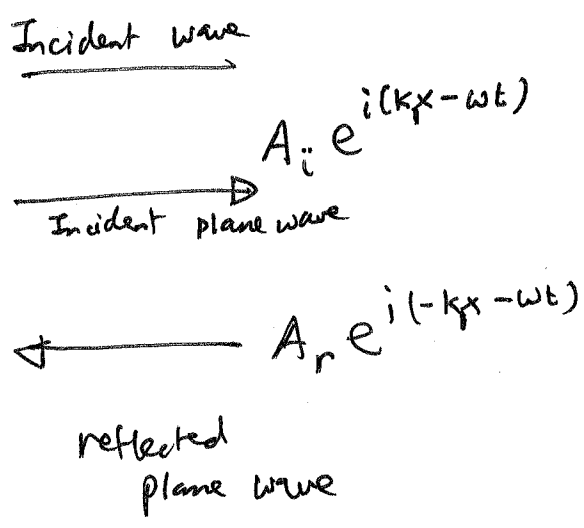 Incident wave
A_i e^{i(k_1x-ωt)}
Incident plane wave
A_r e^{i(-k_1x-ωt)}
reflected
plane wave